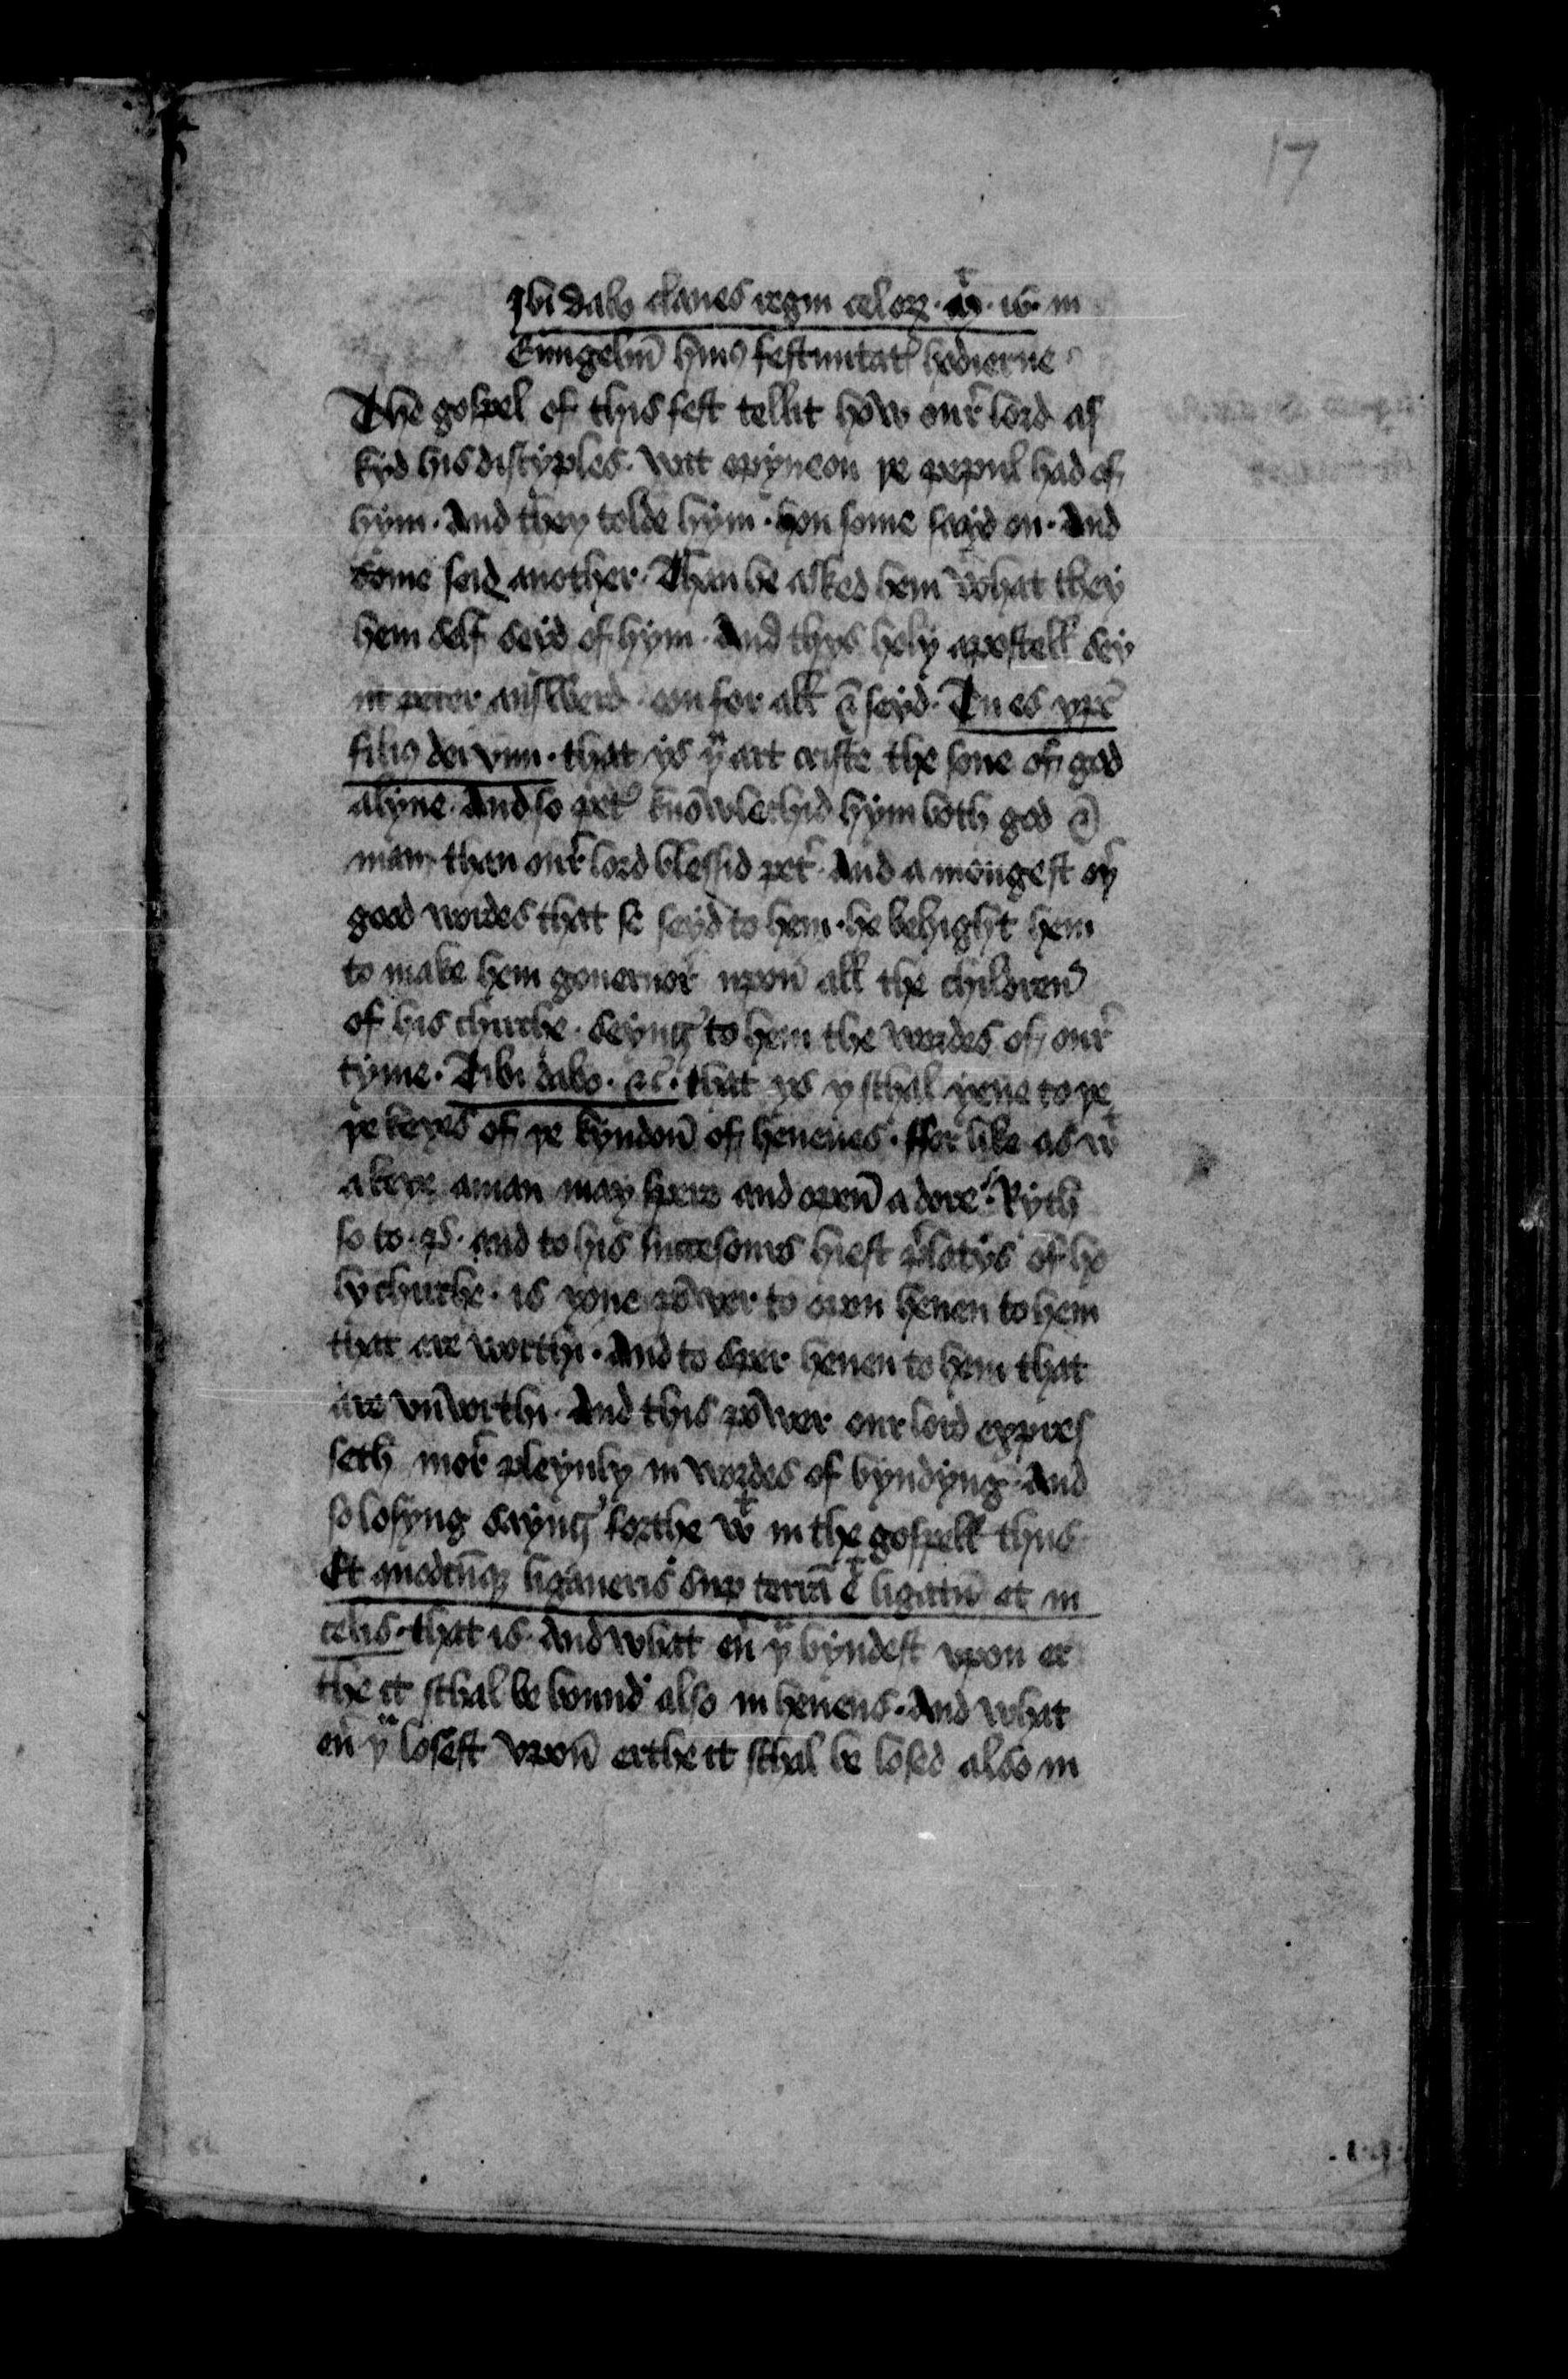 17
Ibi dabo claues regni celoꝝ · mᵗ · 16 · in
Euūgeliū huiꝰ festiuitatꝭ hodierne
The gospel of this fest tellit how ourͬ lord as
kyd his discyples · wat opyneon þe pepul had of
hym · And they tolde hym · hou some sayd on · And
some seid another · Than he asked hem what they
hem self seyd of hym · And thys holy apostell sey
nt peter answerd on for all ⁊ seyd · Tu es xp̄c
filiꝰ dei viui · that ys þͧ art criste the sone of god
alyue · And so petꝰ knowlechid hym both god ⁊
man than ourͬ lord blessid petͬ · And a mongest oþͬ
good wordes that he seyd to hem · he behight hem
to make hem gouernorͬ upon̄ all the children̄
of his churche · seyng to hem the wordes of ourͬ
tyme · Tibi dabo · ⁊c̄ · that ys y schal yeue to þe
þe keyes of þe kyndon̄ of heuenes · ffor like as wᵗ
a keye a man may spere and open̄ a dore · Ryth
so to · pꝰ · and to his succesours hiest p̄latys of ho
ly churche · is youe power to open heuen to hem
that are worthi · And to sper heuen to hem that
are vnworthi · And this power our lord expres
seth morͬ pleynly in wordes of byndyng · And
so losyng seyng forthe wᵗ in the gospell thus
Et quodcūqꝫ ligaueris sup terrā eᵗ ligatū et in
celis · that is · And what eu̾ þͧ byndest vpon er
the it schal be bound also in heuens · And what
eu̾ þͧ losest vpon̄ erthe it schal be losed also in